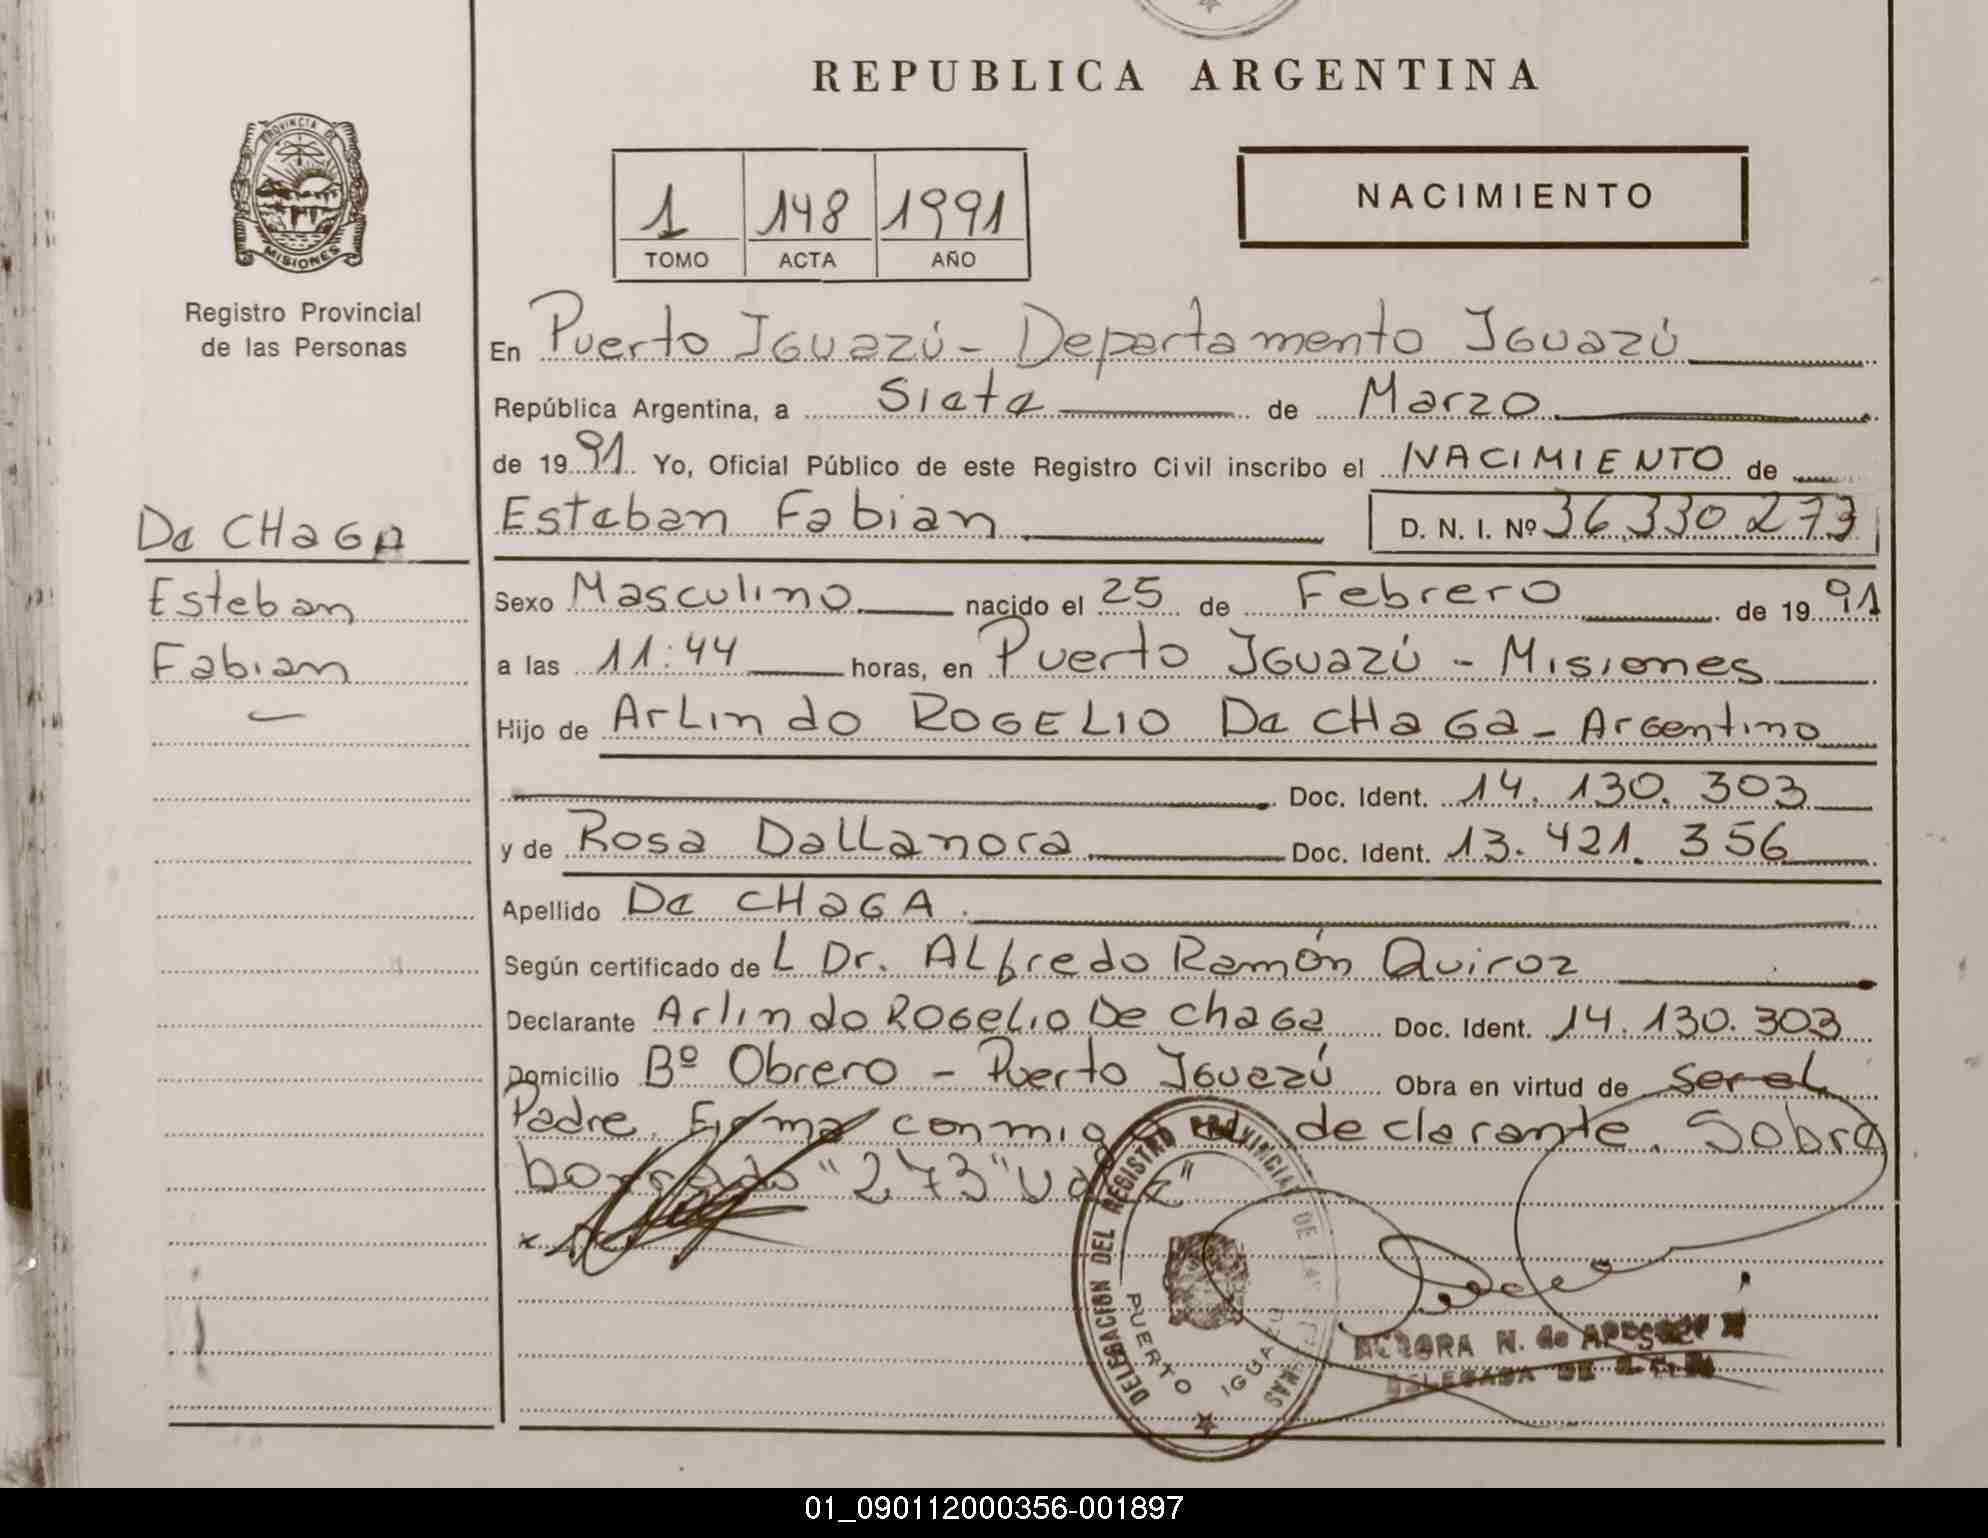 REPUBLICA ARGENTINA
PROVINCIA DE
MISIONES
Registro Provincial
de las Personas
1 148 1991
TOMO ACTA AÑO
NACIMIENTO
En Puerto Iguazú - Departamento Iguazú
República Argentina, a Siete de Marzo
de 1991 Yo, Oficial Público de este Registro Civil inscribo el NACIMIENTO de
De CHaGA
Esteban
Fabian
Esteban Fabian D. N. I. Nº 36.330.273
Sexo Masculino nacido el 25 de Febrero de 1991
a las 11:44 horas, en Puerto Iguazú - Misiones
Hijo de Arlindo ROGELIO De CHaGa - Argentino
Doc. Ident. 14.130.303
y de Rosa Dallanora Doc. Ident. 13.421.356
Apellido De CHaGA
Según certificado de L Dr. Alfredo Ramón Quiroz
Declarante Arlindo Rogelio De Chaga Doc. Ident. 14.130.303
Domicilio Bº Obrero - Puerto Iguazú Obra en virtud de Ser el
Padre. Firma conmigo el declarante. Sobre
borrado "273" Vale"
DELEGACION DEL REGISTRO PROVINCIAL DE LAS PERSONAS
PUERTO IGUAZU
N. de
DELEGADA DE
01_090112000356-001897